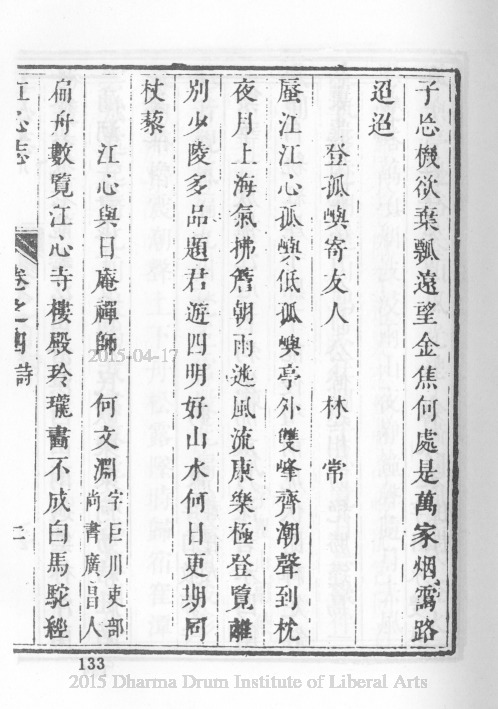 子忘機欲棄瓢遠望金焦何處是萬家烟靄路
迢迢
登孤嶼寄友人　林　常
蜃江江心孤嶼低孤嶼亭外雙峰齊潮聲到枕
夜月上海氣拂簷朝雨迷風流康樂極登覽離
別少陵多品題君遊四明好山水何日更期同
杖藜
江心與日庵禪師　何文淵 字巨川吏部尚書廣昌人
扁舟數覽江心寺樓殿玲瓏畫不成白馬駝經
江心志　卷之四詩
133
2015-04-17
2015 Dharma Drum Institute of Liberal Arts